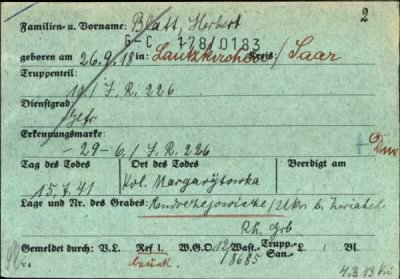 2
Familien- u. Vorname: Blatt, Herbert
G-C 178/0183
geboren am 26.9.18 in: Lautzkirchen Kreis: / Saar
Truppenteil:
10/J.R. 226
Dienstgrad:
Gefr
Erkennungsmarke:
-29- 6./J.R. 226
Tag des Todes Ort des Todes Beerdigt am
15.7.41 Kol. Margarytowka
Lage und Nr. des Grabes: Andrezejowicze/Ukr b.
Gemeldet durch: V.L. Ref I. W.G.O. 12/ Wast.- Trupp.- L. Bl.
San.-
/8685
4.3.43